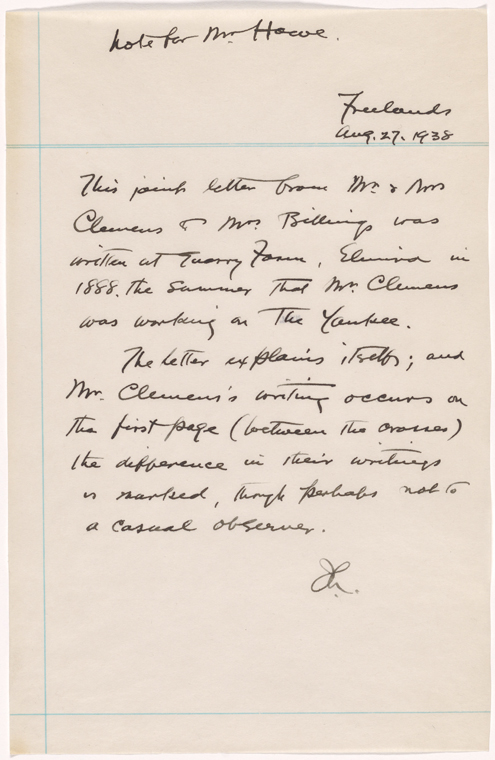 Note for Mr. Howe.
Freelands
Aug. 27. 1938
This joint letter from Mr. & Mrs
Clemens to Mrs. Billings was
written at Quarry Farm, Elmira in
1888. the summer that Mr. Clemens
was working on The Yankee.
The letter explains itself; and
Mr. Clemens's writing occurs on
the first page (between the crosses)
the difference in their writings
is marked, though perhaps not to
a casual observer.